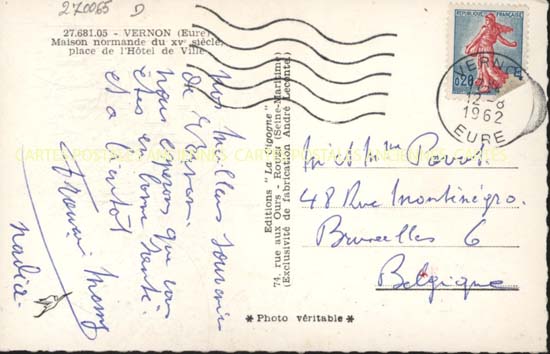 270065 D
27.681.05 - VERNON (Eure)
Maison normande du XVe siècle,
place de l'Hôtel de Ville
Nos meilleurs souvenirs
de Vernon.
nous espérons que vous
êtes en bonne santé.
et à bientôt
Nadia.
Editions "La Cigogne"
74, rue aux Ours - Rouen (Seine-Maritime)
(Exclusivité de fabrication André Leconte)
REPUBLIQUE FRANÇAISE
0,20
VERNON
12-8
1962
EURE
48 Rue Monténégro.
Bruxelles 6
Belgique
* Photo véritable *
CARTES POSTALES ANCIENNES